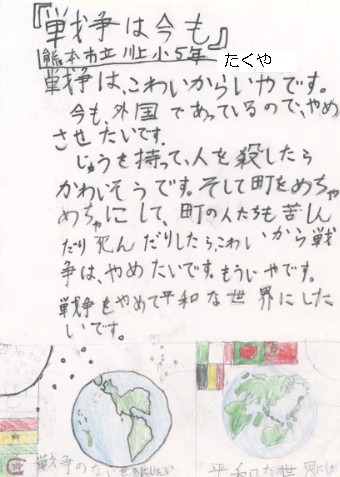 『戦争は今も』
熊本市立川上小5年 たくや
戦争は、こわいからいやです。
今も、外国であっているので、やめ
させたいです。
じゅうを持って、人を殺したら
かわいそうです。そして町をめちゃ
めちゃにして、町の人たちも苦しん
だり死んだりしたら、こわいから戦
争は、やめたいです。もういやです。
戦争をやめて平和な世界にした
いです。
戦争のない世界にしたい
平和な世界にしたい